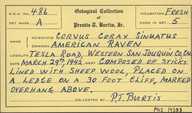 No. 486 Oological Collection Fresh
A of Set 5
Preston T. Burtis, Jr.
Name Corvus Corax Sinuatus
American Raven
Tesla Road, Western San Joaquin Co., Cal.
Date March 29th, 1942. Composed of sticks
lined with sheep wool, placed on
a ledge on a 30 foot cliff, marked
overhang above.
P.T. Burtis